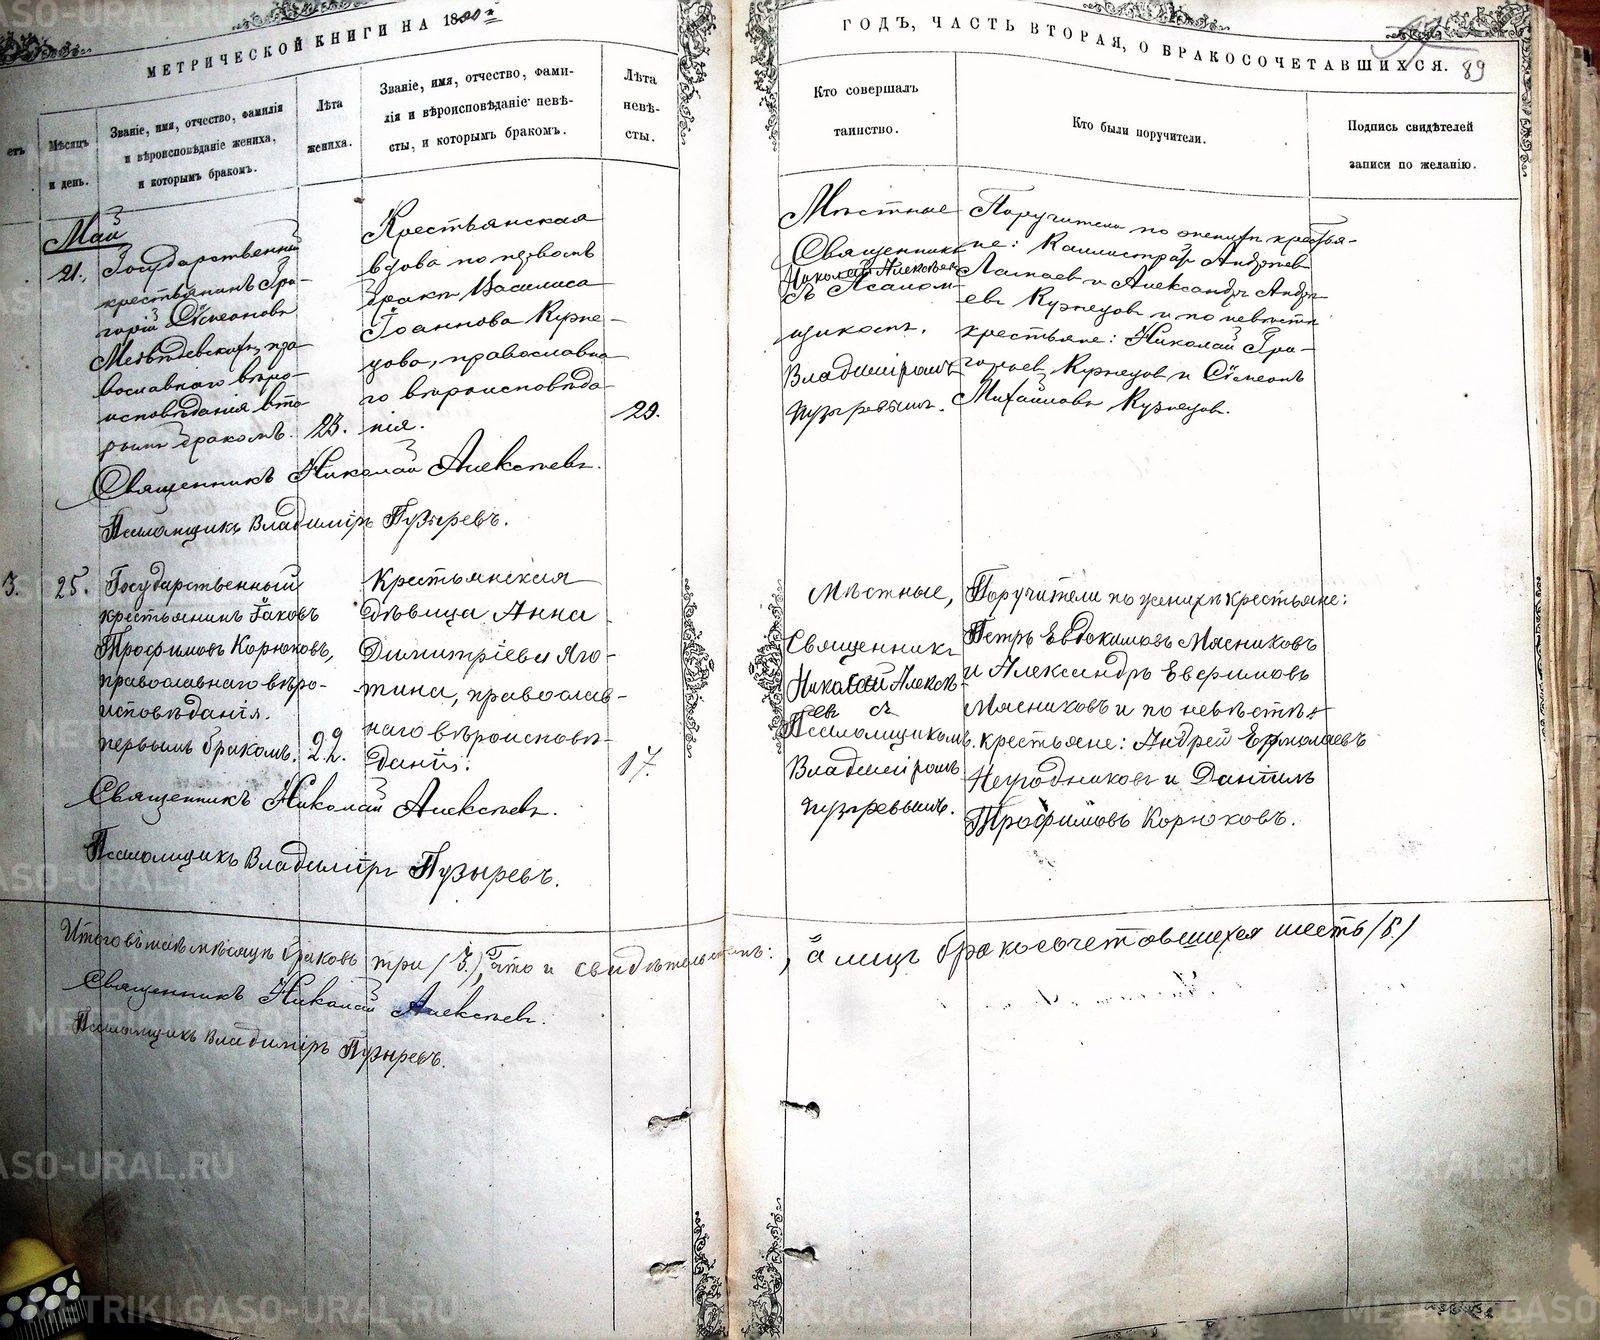 МЕТРИЧЕСКОЙ КНИГИ НА 1880
ГОДЪ, ЧАСТЬ ВТОРАЯ, О БРАКОСОЧЕТАВШИХСЯ.
89
етъ
Мѣсяцъ
и день.
Званіе, имя, отчество, фамилія
и вѣроисповѣданіе жениха,
и которымъ бракомъ.
Лѣта
жениха.
Званіе, имя, отчество, фами-
лія и вѣроисповѣданіе невѣ-
сты, и которымъ бракомъ.
Лѣта
невѣ-
сты.
Кто совершалъ
таинство.
Кто были поручители.
Подпись свидѣтелей
записи по желанію.
Май
21.
Государственный
крестьянинъ Гри-
горій Сѵмеоновъ
пра-
вославнаго вѣро-
исповѣданія вто
рымъ бракомъ.
23.
Крестьянская
вдова по первомъ
бракѣ Василиса
Іоаннова Кузне-
цова, православна
го вѣроисповѣда
нія.
29.
Мѣстные
Священникъ
Николай Алексѣевъ
съ Псалом-
щикомъ
Владиміромъ
Пузыревымъ.
Поручители по женихѣ крестья-
не: Каллистратъ Андреевъ
и Александръ Андре
евъ Кузнецовъ и по невѣстѣ
крестьяне: Николай Гри-
горьевъ Кузнецовъ и Сѵмеонъ
Михайловъ Кузнецовъ.
Священникъ Николай Алексѣевъ.
Псаломщикъ Владиміръ Пузыревъ.
3.
25.
Государственный
крестьянинъ Іаковъ
Трофимовъ Корюковъ,
православнаго вѣро-
исповѣданія.
первымъ бракомъ.
22.
Крестьянская
дѣвица Анна
Димитріева Яго-
тина, православ-
наго вѣроисповѣ-
данія.
17.
Мѣстные,
Священникъ
Николай Алексѣ-
евъ съ
Псаломщикомъ
Владиміромъ
Пузыревымъ.
Поручители по женихѣ крестьяне:
Петръ Евдокимовъ Мясниковъ
и Александръ Евфимовъ
Мясниковъ и по невѣстѣ
крестьяне: Андрей Ермолаевъ
Неугодниковъ и Даніилъ
Трофимовъ Корюковъ.
Священникъ Николай Алексѣевъ.
Псаломщикъ Владиміръ Пузыревъ.
Итого въ маѣ мѣсяцѣ браковъ три (3.), что и свидѣтельствуемъ:, а лицъ бракосочетавшихся шесть (6.)
Священникъ Николай Алексѣевъ.
Псаломщикъ Владиміръ Пузыревъ.
METRIKI.GASO-URAL.RU